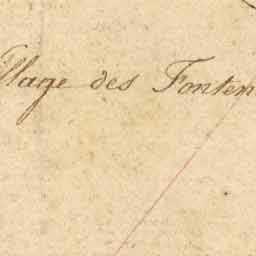 illage des Fonten